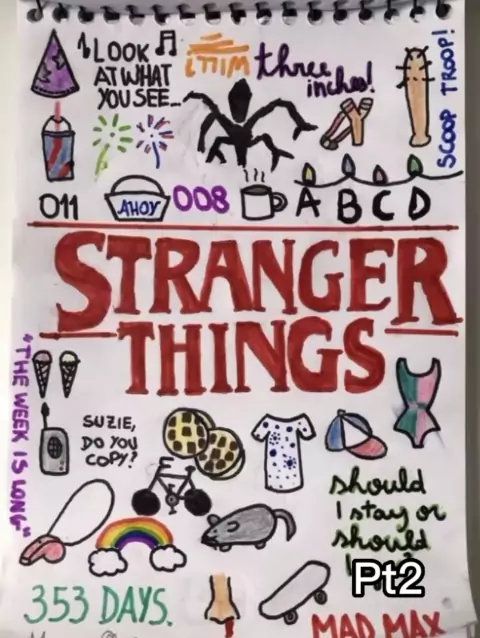 LOOK
AT WHAT
YOU SEE...
three
inches!
SCOOP TROOP!
011
AHOY
008
A B C D
STRANGER
THINGS
"THE WEEK IS LONG"
SUZIE,
DO YOU
COPY?
should
I stay or
should
Pt2
353 DAYS.
MAD MAX